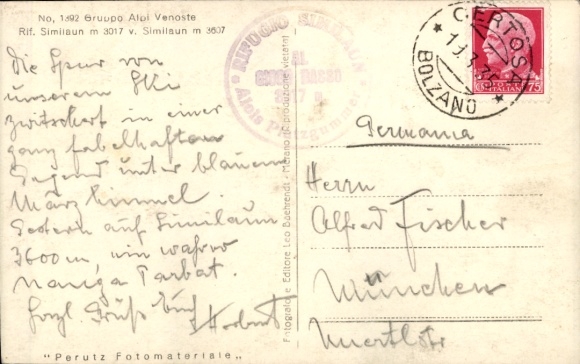 No, 1392 Gruppo Alpi Venoste
Rif. Similaun m 3017 v. Similaun m 3607
Die Spur von
unserem Ski
zwitschert in einer
ganz fabelhaften
Gegend unter blauem
Märzhimmel.
Gestern auf Similaun
3600 m, ein wahrer
Nanga Parbat.
Herzl. Grüße Euch
Herbert
"Perutz Fotomateriale"
Fotografia e Editore Leo Baehrendt - Merano (Riproduzione vietata)
RIFUGIO SIMILAUN
AL
Alois Platzgummer
CERTOSA
BOLZANO
75
ITALIANE
Germania
Herrn
Alfred Fischer
München